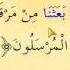 بَعَثَنَا مِن مَّرْقَ
الْمُرْسَلُونَ